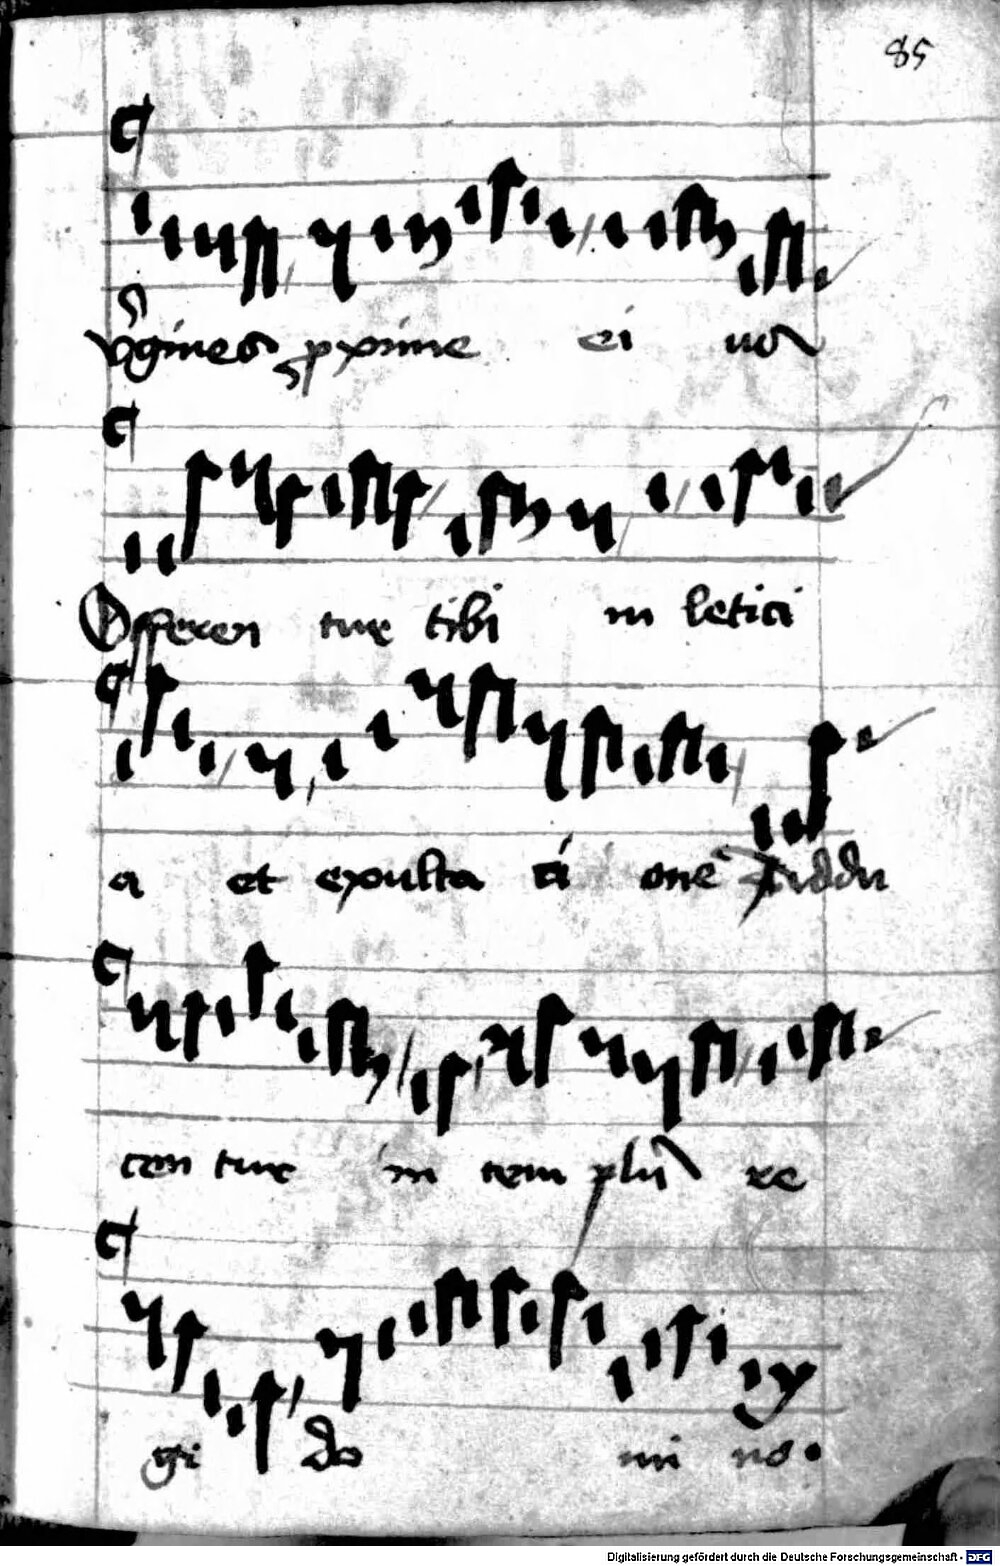 85
v̾gines ꝓxime ei us
Offeren tur tibi in letici
a et exulta ti one Addu
cen tur in tem plū re
gi do mi no.
Digitalisierung gefördert durch die Deutsche Forschungsgemeinschaft - DFG